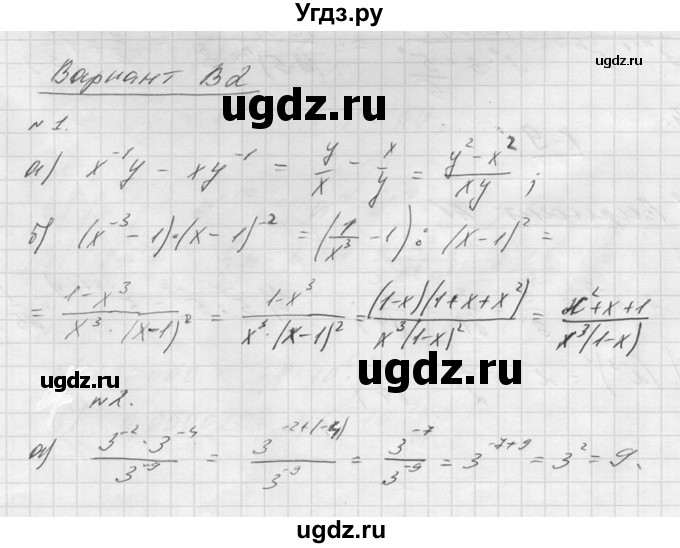 Угдз.ру
ugdz.ru
Вариант В2
ugdz.ru
№1.
а) x⁻¹y − xy⁻¹ = y/x − x/y = (y² − x²)/(xy) ;
б) (x⁻³ − 1)·(x − 1)⁻² = (1/x³ − 1) : (x − 1)² =
= (1−x³)/(x³·(x−1)²) = (1−x³)/(x³·(x−1)²) = ((1−x)(1+x+x²))/(x³(1−x)²) = (x²+x+1)/(x³(1−x))
ugdz.ru
ugdz.ru
№2.
а) (3⁻²·3⁻⁴)/3⁻⁹ = 3⁻²⁺⁽⁻⁴⁾/3⁻⁹ = 3⁻⁷/3⁻⁹ = 3⁻⁷⁺⁹ = 3² = 9.
ugdz.ru
ugdz.ru